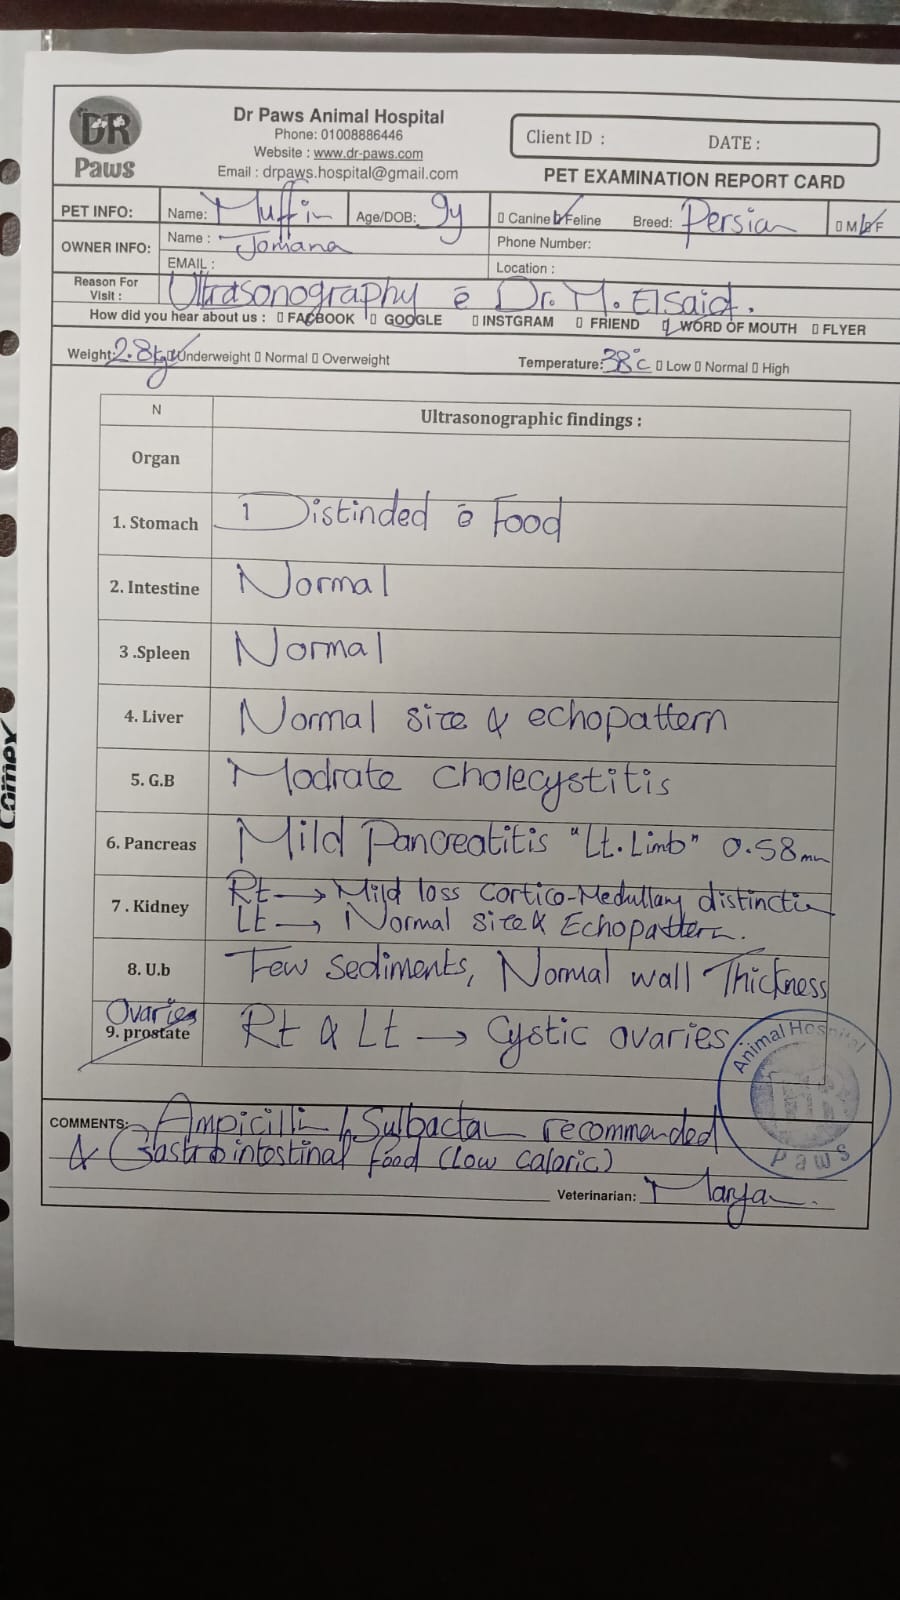 DR
Paws
Dr Paws Animal Hospital
Phone: 01008886446
Website : www.dr-paws.com
Email : drpaws.hospital@gmail.com
Client ID : DATE :
PET EXAMINATION REPORT CARD
PET INFO: Name: Muffin Age/DOB: 9y Canine Feline Breed: Persian M F
OWNER INFO: Name : Jomana Phone Number:
EMAIL : Location :
Reason For Visit : Ultrasonography c̄ Dr. M. Elsaid.
How did you hear about us : FACBOOK GOOGLE INSTGRAM FRIEND WORD OF MOUTH FLYER
Weight: 2.8kg Underweight Normal Overweight Temperature: 38°c Low Normal High
N Ultrasonographic findings :
Organ
1. Stomach Distinded c̄ Food
2. Intestine Normal
3 .Spleen Normal
4. Liver Normal size & echopattern
5. G.B Modrate cholecystitis
6. Pancreas Mild Pancreatitis "Lt. Limb" 0.58mm
7 . Kidney Rt → Mild loss Cortico-Medullary distinction
Lt → Normal size & Echopattern.
8. U.b Few sediments, Normal wall Thickness
Ovaries
9. prostate Rt & Lt → Cystic ovaries
Animal Hospital
Paws
COMMENTS: Ampicillin / Sulbactam recommended
& Gastrointestinal food (low caloric)
Veterinarian:
Comex